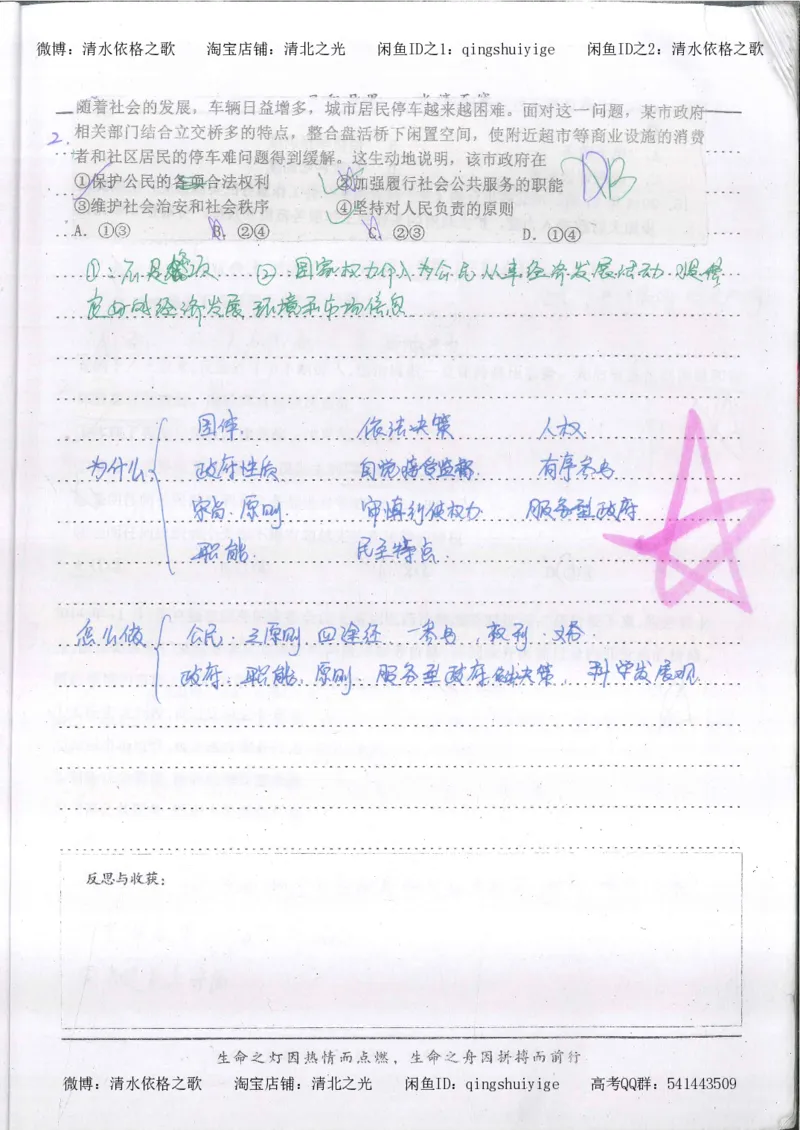 微博：清水依格之歌 淘宝店铺：清北之光 闲鱼ID之1：qingshuiyige 闲鱼ID之2：清水依格之歌
随着社会的发展，车辆日益增多，城市居民停车越来越困难。面对这一问题，某市政府
2. 相关部门结合立交桥多的特点，整合盘活桥下闲置空间，使附近超市等商业设施的消费
者和社区居民的停车难问题得到缓解。这生动地说明，该市政府在
①保护公民的各项合法权利 ②加强履行社会公共服务的职能 DB
③维护社会治安和社会秩序 ④坚持对人民负责的原则
A. ①③ B. ②④ C. ②③ D. ①④
①：不是 ②：国家权力 为公民从事经济发展活动.提供
良好的经济发展环境和市场信息
国体. 依法决策 人权.
为什么 政府性质 自觉接受监督 有序参与
宗旨.原则. 审慎行使权力 服务型政府
职能. 民主特点.
怎么做 公民：三原则.四 一参与，权利.义务
政府.职能.原则.服务型政府 决策，科学发展观
反思与收获：
生命之灯因热情而点燃，生命之舟因拼搏而前行
微博：清水依格之歌 淘宝店铺：清北之光 闲鱼ID：qingshuiyige 高考QQ群：541443509